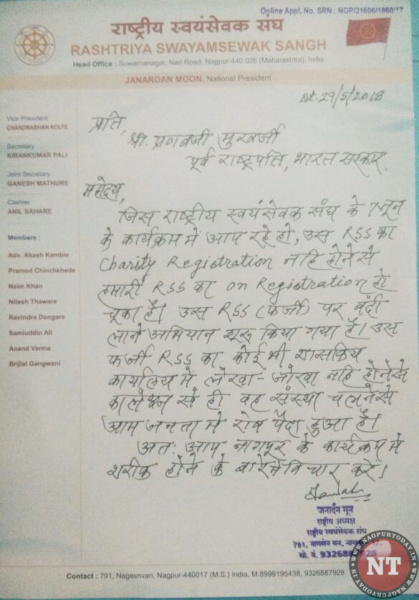 Online Appl. No. SRN : NGP/21606/1860/17
राष्ट्रीय स्वयंसेवक संघ
RASHTRIYA SWAYAMSEWAK SANGH
Head Office : Suwarnanagar, Nari Road, Nagpur-440 026 (Maharashtra), India
JANARDAN MOON, National President
दि. 29/5/2018
प्रति,
श्री. प्रणवजी मुखर्जी
पूर्व राष्ट्रपति, भारत सरकार.
महोदय,
जिस राष्ट्रीय स्वयंसेवक संघ के 7 जून
के कार्यक्रम मे आप रहे हो, उस RSS का
Charity Registration नहि होनेसे
हमारी RSS का on Registration हो
चूका है। उस RSS (फर्जी) पर बंदी
लाने अभियान शुरू किया गया है। उस
फर्जी RSS का कोई भी शासकिय
कार्यालय मे लेखा-जोखा नहि होनेसे
कालेधन से ही वह संस्था चलनेसे
आम जनता मे रोष पैदा हुआ है।
अतः आप नागपुर के कार्यक्रम मे
शरीक होने के बारेमे विचार करे।
जनार्दन मून
राष्ट्रीय अध्यक्ष
राष्ट्रीय स्वयंसेवक संघ
791, नागसेन वन,
मो. नं. 9326887928
Vice President
CHANDRABHAN KOLTE
Secretary
KIRANKUMAR PALI
Joint Secretary
GANESH MATHURE
Cashier
ANIL SAHARE
Members :
Adv. Akash Kamble
Pramod Chinchkhede
Naim Khan
Nilesh Thaware
Ravindra Dongare
Samiuddin Ali
Anand Verma
Brijlal Gangwani
Contact : 791, Nagesnvan, Nagpur-440017 (M.S.) India, M.8999195438, 9326887928
NT